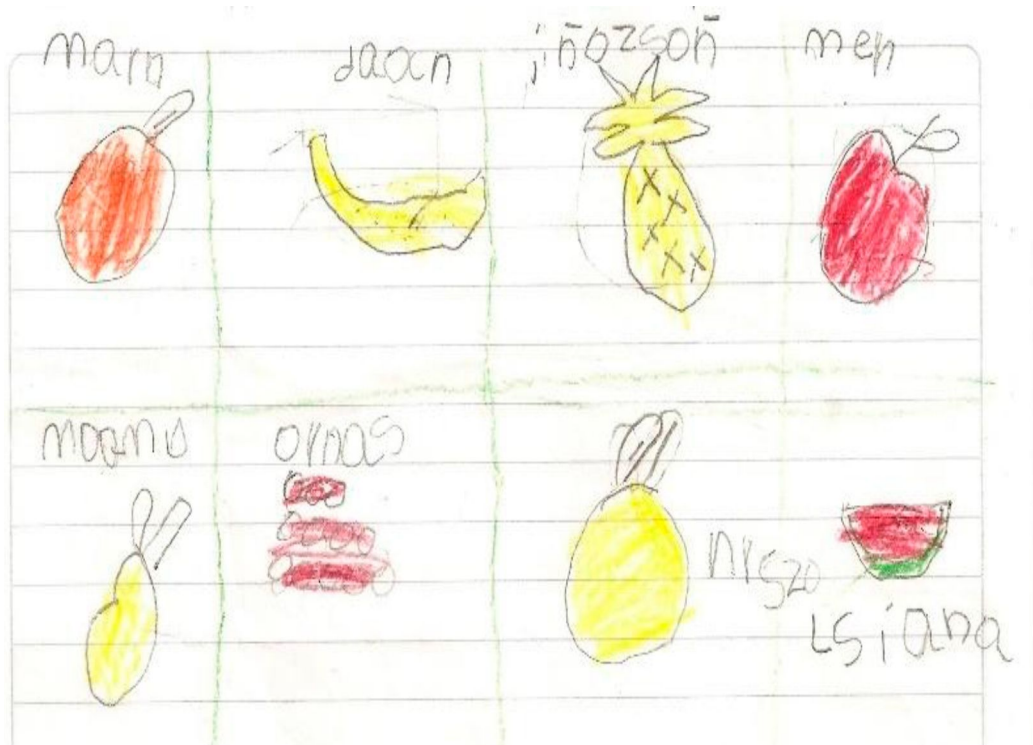 marn
daoan
iñozsoñ
men
moamo
ornas
nrszo
Lsiana